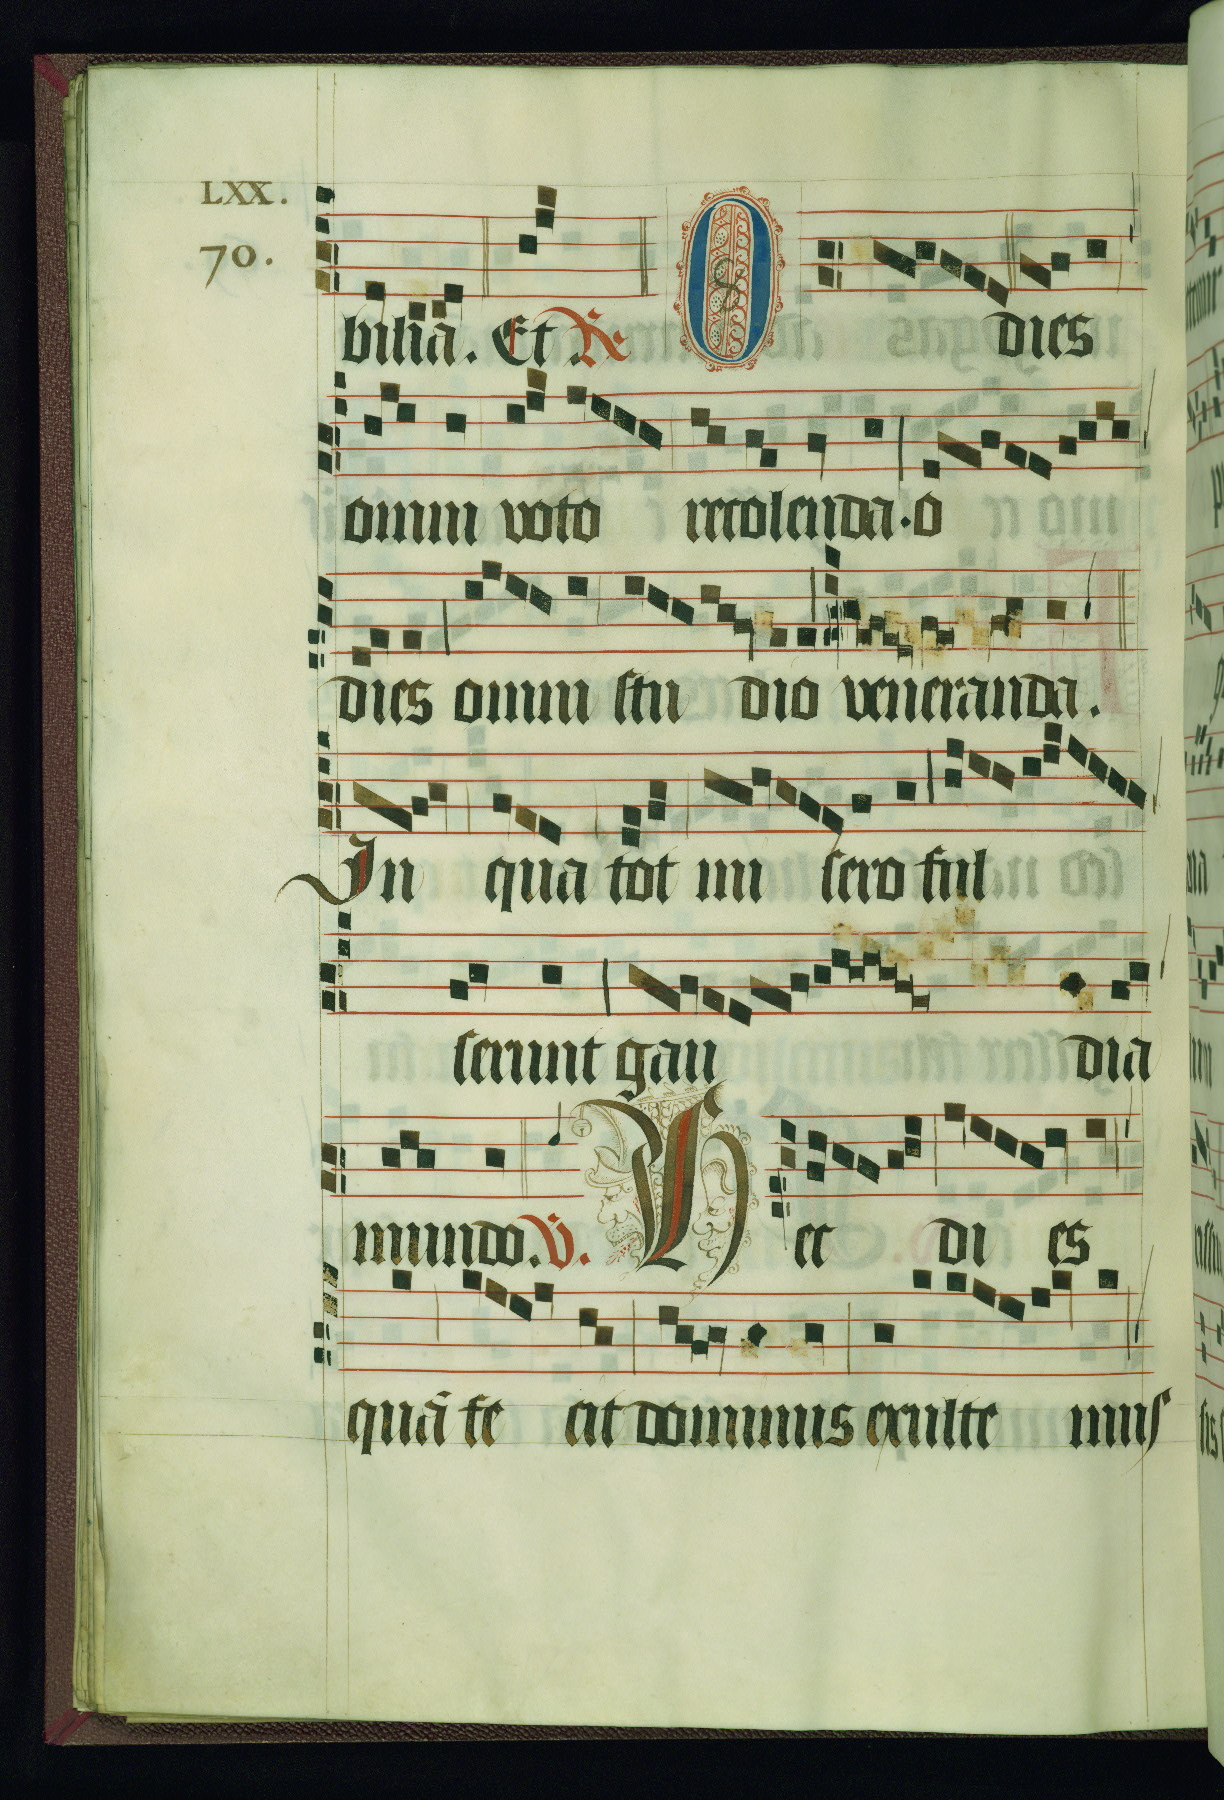 LXX.
70.
bilia. Et .R̃ O dies
omni voto recolenda. o
dies omni stu dio veneranda.
In qua tot mi sero ful
serunt gau dia
mundo. V̄. Hec di es
quā fe cit dominus exulte mus